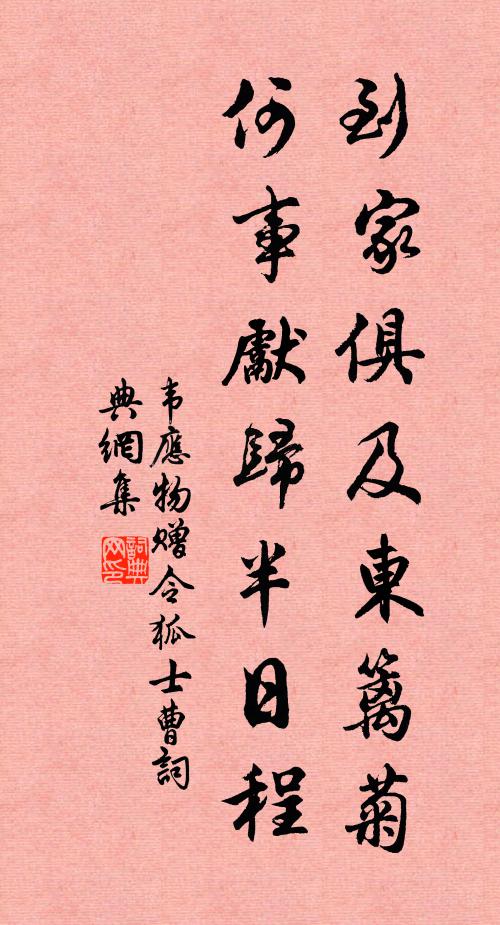 到家俱及東篱菊
何事獻歸半日程
韦應物赠令狐士曹詞
典網集
詞典
网印